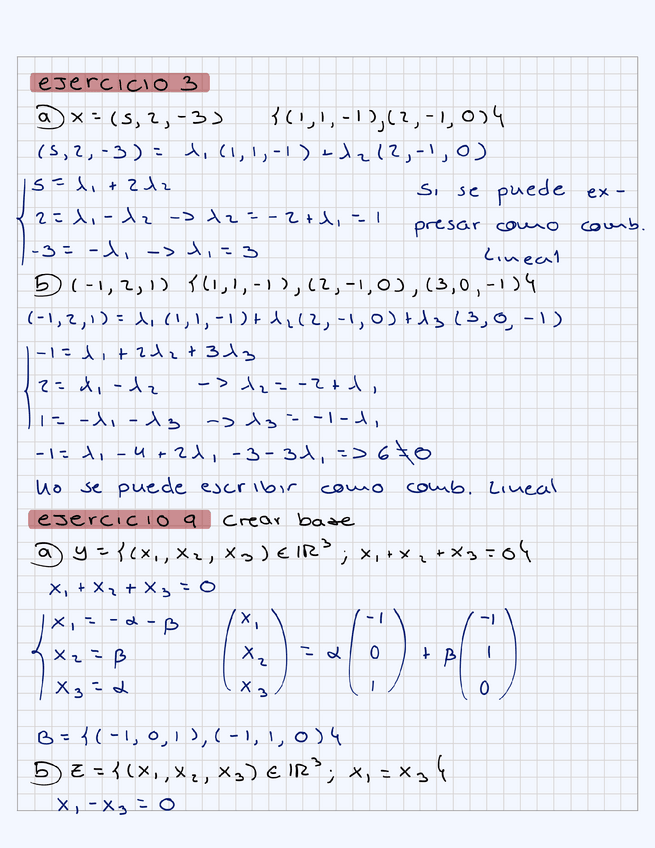 ejercicio 3
a) x = (5, 2, -3) {(1, 1, -1), (2, -1, 0)}
(5, 2, -3) = λ₁ (1, 1, -1) + λ₂ (2, -1, 0)
5 = λ₁ + 2λ₂
2 = λ₁ - λ₂ -> λ₂ = -2 + λ₁ = 1
-3 = -λ₁ -> λ₁ = 3
Si se puede ex-
presar como comb.
Lineal
b) (-1, 2, 1) {(1, 1, -1), (2, -1, 0), (3, 0, -1)}
(-1, 2, 1) = λ₁ (1, 1, -1) + λ₂ (2, -1, 0) + λ₃ (3, 0, -1)
-1 = λ₁ + 2λ₂ + 3λ₃
2 = λ₁ - λ₂ -> λ₂ = -2 + λ₁
1 = -λ₁ - λ₃ -> λ₃ = -1 - λ₁
-1 = λ₁ - 4 + 2λ₁ - 3 - 3λ₁ => 6 ≠ 0
No se puede escribir como comb. Lineal
ejercicio 9 Crear base
a) Y = {(x₁, x₂, x₃) ∈ ℝ³ ; x₁ + x₂ + x₃ = 0}
x₁ + x₂ + x₃ = 0
x₁ = -α - β
x₂ = β
x₃ = α
(x₁ x₂ x₃) = α (-1 0 1) + β (-1 1 0)
B = {(-1, 0, 1), (-1, 1, 0)}
b) Z = {(x₁, x₂, x₃) ∈ ℝ³ ; x₁ = x₃}
x₁ - x₃ = 0